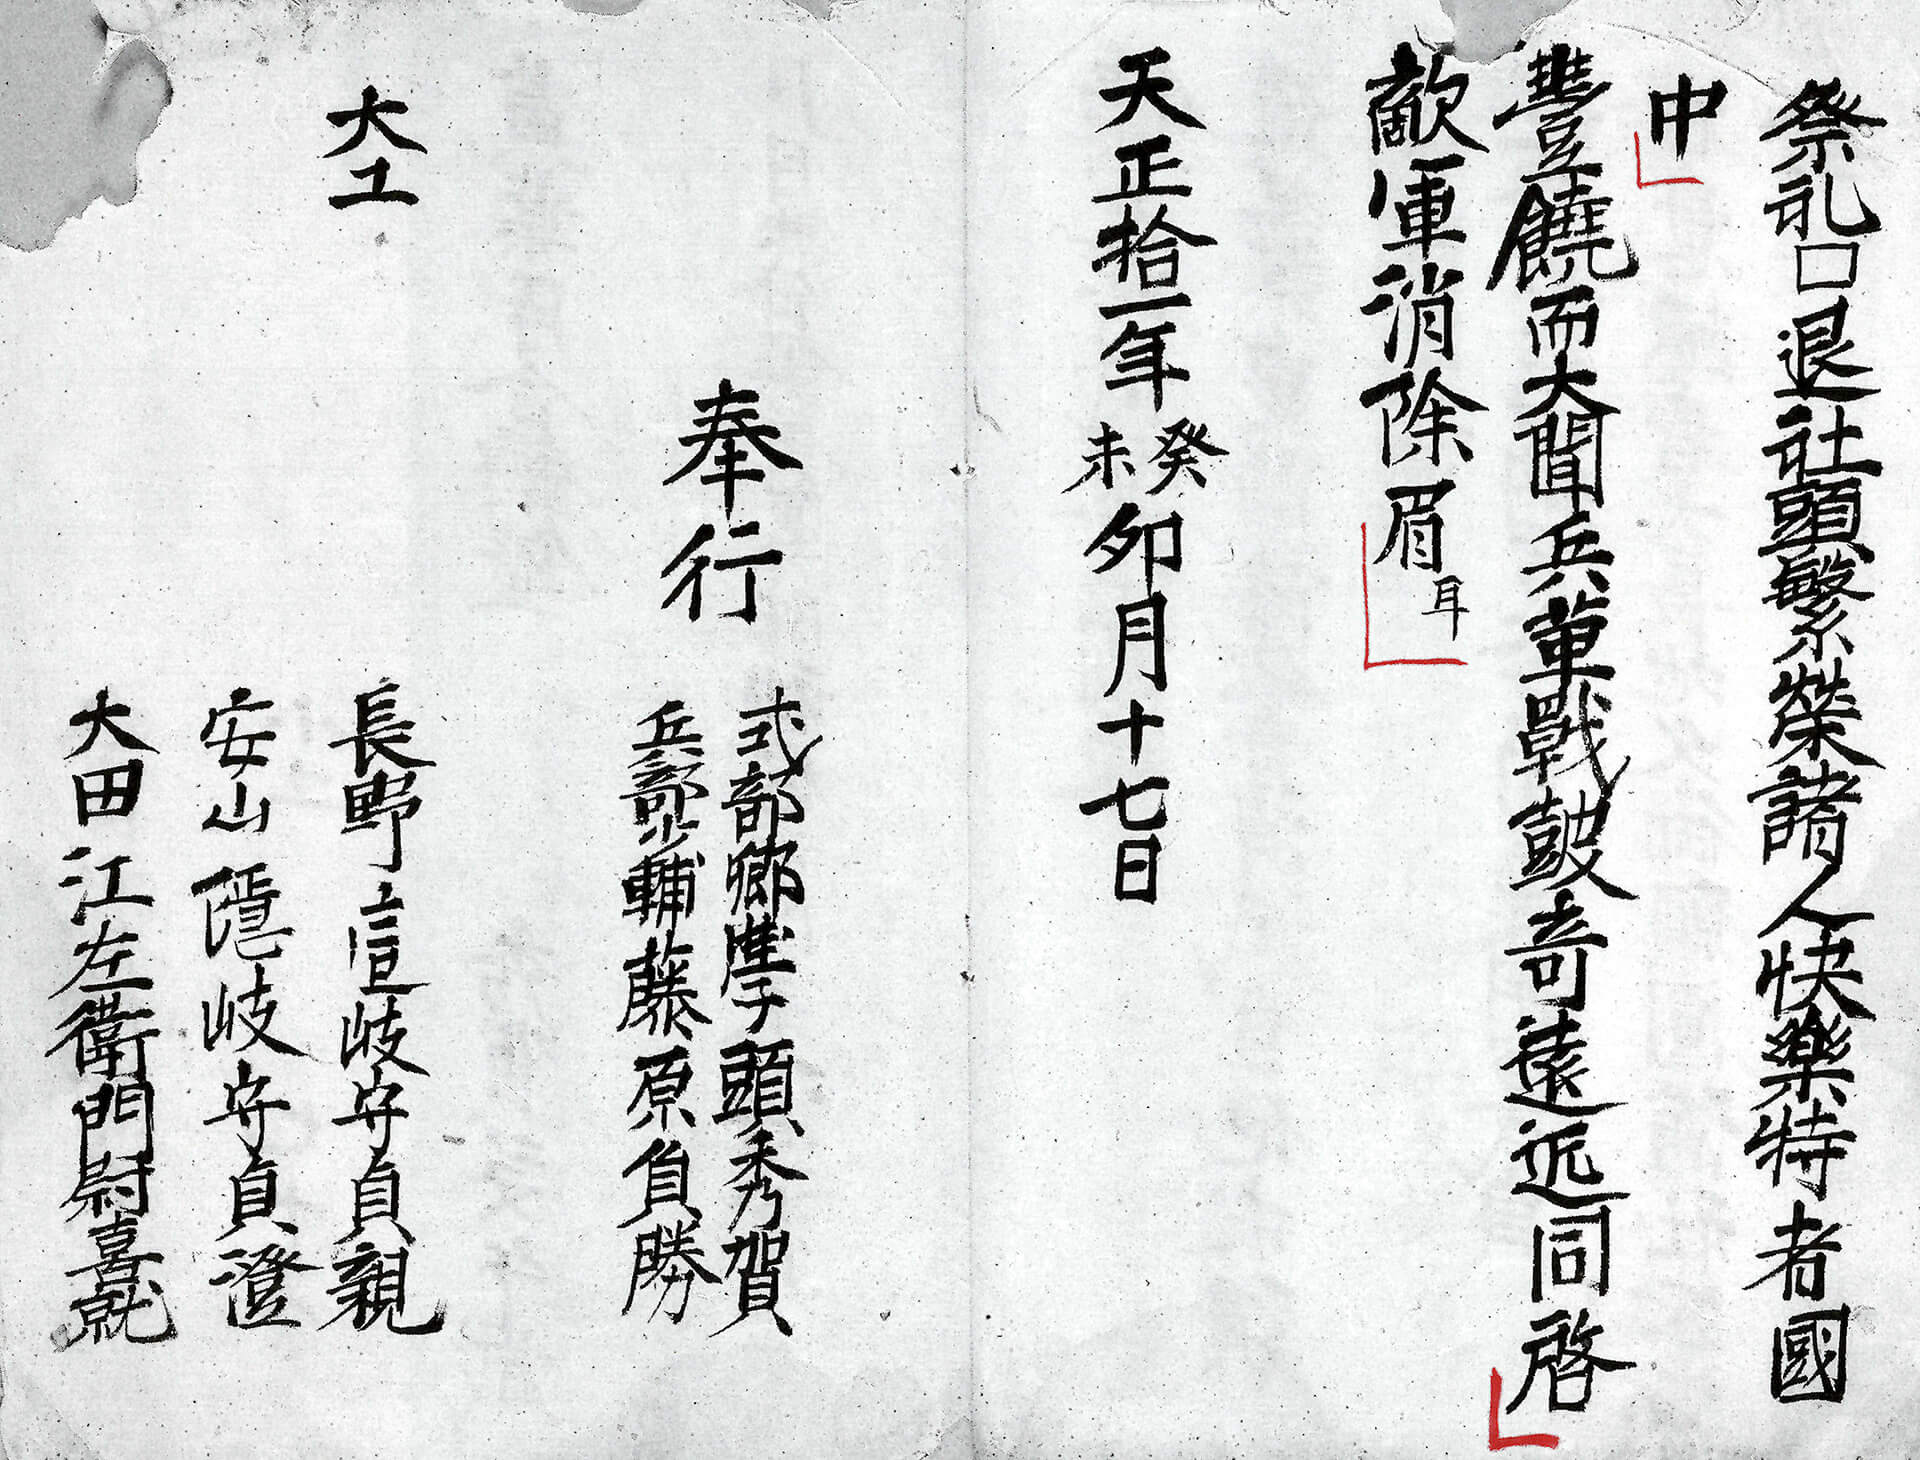 祭礼口退社頭繁榮諸人快樂特者國
中
豐饒而大聞兵菓戰鼓奇遠近同啓
敵軍消除眉
耳
天正拾一年癸未卯月十七日
奉行
式部卿學頭秀賀
兵部少輔藤原負勝
大工
長野壹岐守貞親
安山隠岐守貞澄
大田江左衛門尉喜就